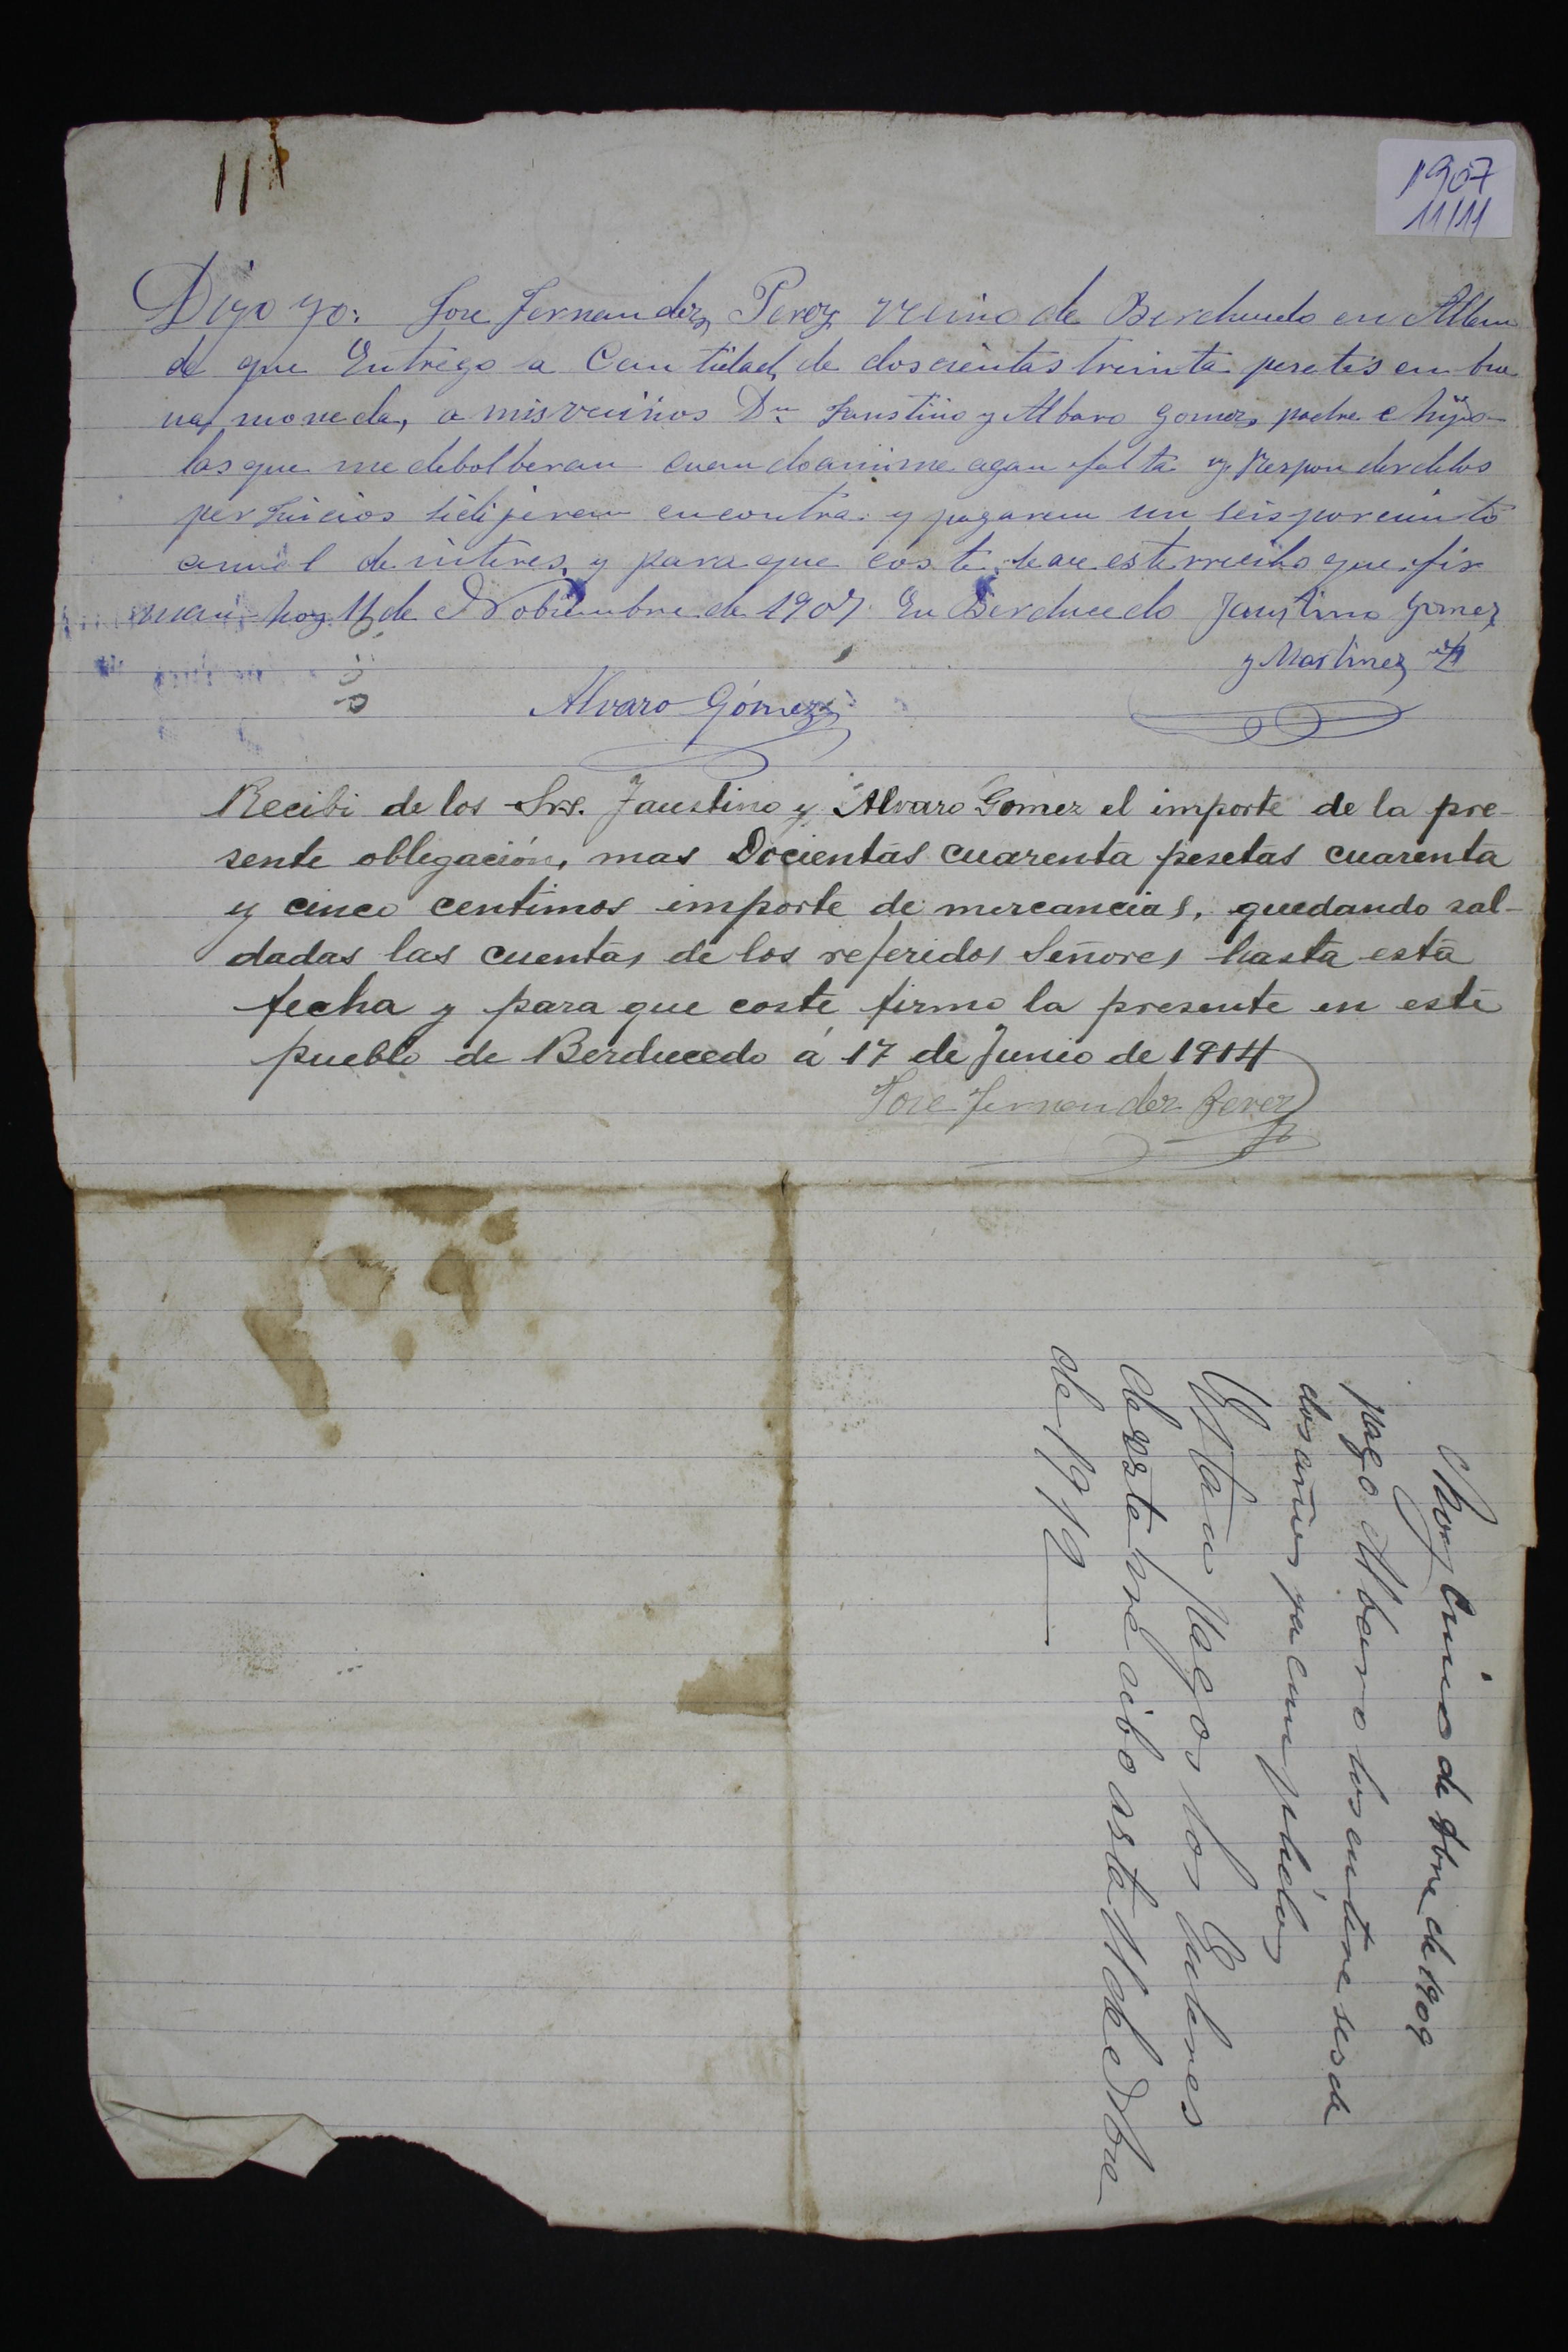 1907
11/11
Digo yo: Jose Fernandez Perez vecino de Berducedo en Allan
de que Entrego a Cantidad de doscientas treinta pesetas en bue
na moneda, a misvecinos Dn Faustino y Albaro Gomez padre e hijo
las que me debolberan cuando ami me agan falta y Responder delos
perJuicios sidijeren encontra y pagaren un seis porciento
anual de interes y para que coste hace este rrecibo que fir
man hoy 11 de Nobiembre de 1907 En Berducedo Faustino Gomez
y Martinez
Alvaro Gómez
Recibi de los Srs. Faustino y Alvaro Gomez el importe de la pre-
sente obligación, mas Docientas cuarenta pesetas cuarenta
y cinco centimos importe de mercancias, quedando sal-
dadas las cuentas de los referidos Señores hasta esta
fecha y para que coste firmo la presente en este
pueblo de Berducedo á 17 de Junio de 1914
Jose Fernandez Perez
Hoy Cinco de de 1909
pago Albaro los entereses de
dos años ya cumplidos
Estan pagos los Enteres
de este recibo asta 11 de Nbre
de 1912